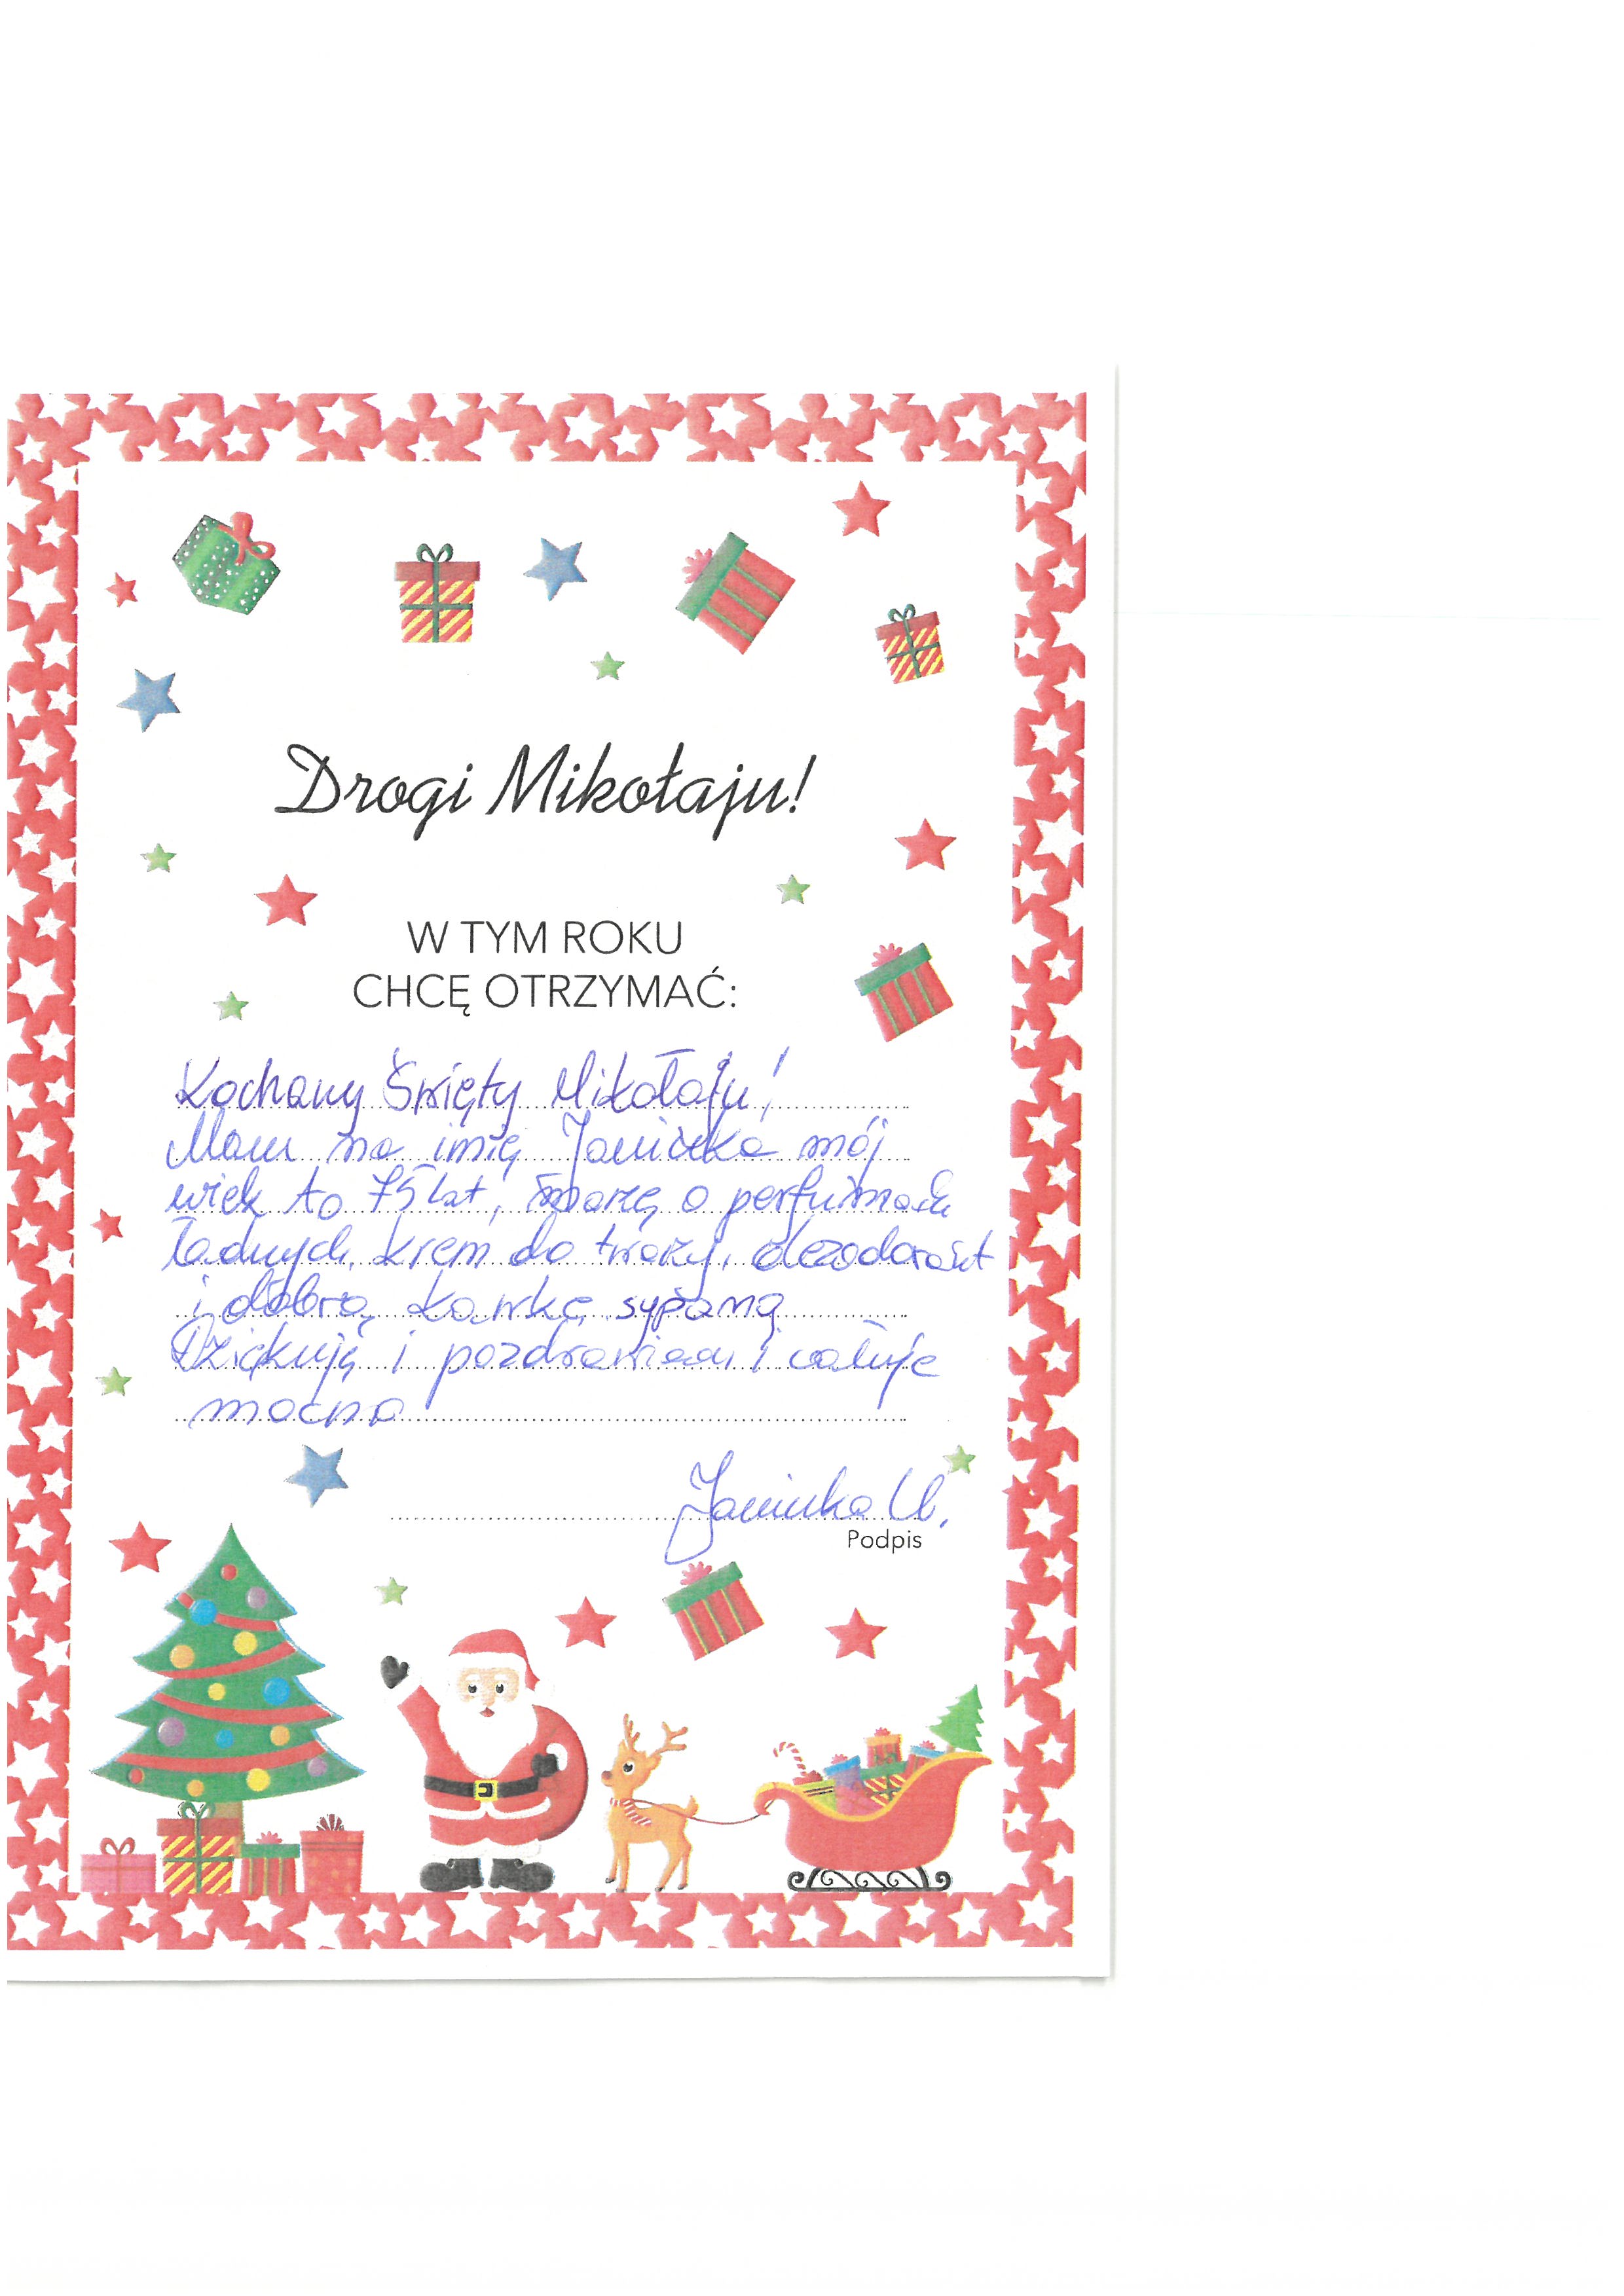 Drogi Mikołaju!
W TYM ROKU
CHCĘ OTRZYMAĆ:
Kochany Święty Mikołaju!
Mam na imię Janinka mój
wiek to 75 lat, marzę o perfumach
ładnych, krem do twarzy, dezodorant
i dobrą kawkę sypaną
Dziękuję i pozdrawiam i całuje
mocno
Janinka U.
Podpis